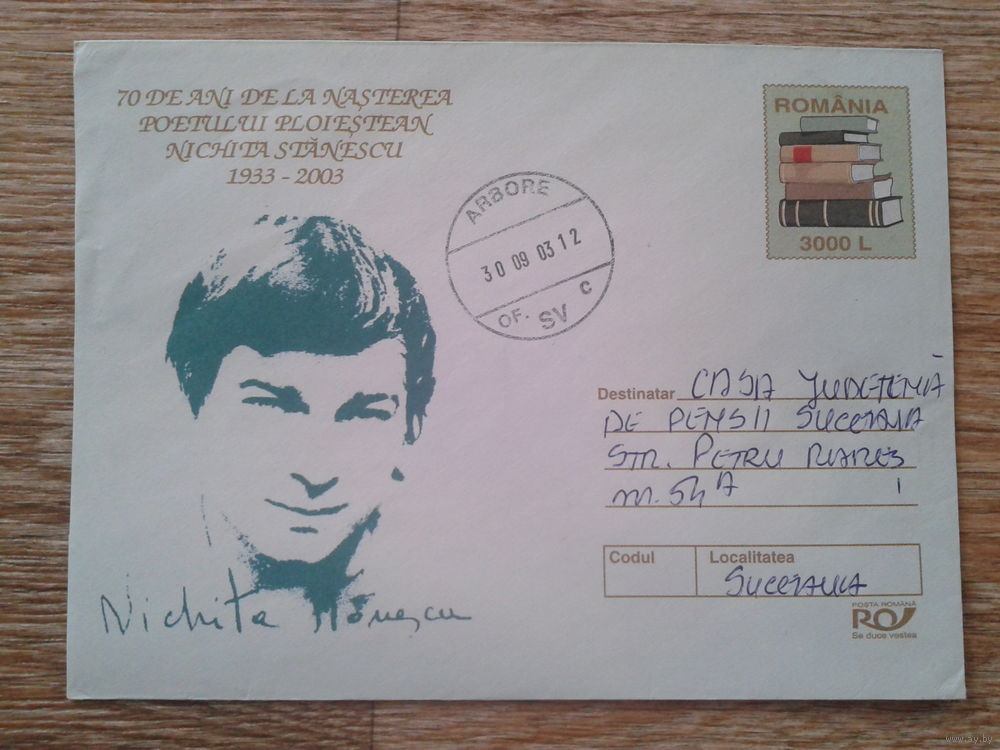 70 DE ANI DE LA NAȘTEREA
POETULUI PLOIEȘTEAN
NICHITA STĂNESCU
1933 - 2003
ROMÂNIA
3000 L
ARBORE
30 09 03 12
OF. SV c
Destinatar CASA JUDEȚEANĂ
DE PENSII SUCEAVA
STR. PETRU RAREȘ
nr. 54 A
Codul
Localitatea
SUCEAVA
POȘTA ROMÂNĂ
RO
Se duce vestea
Nichita Stănescu
www.ay.by